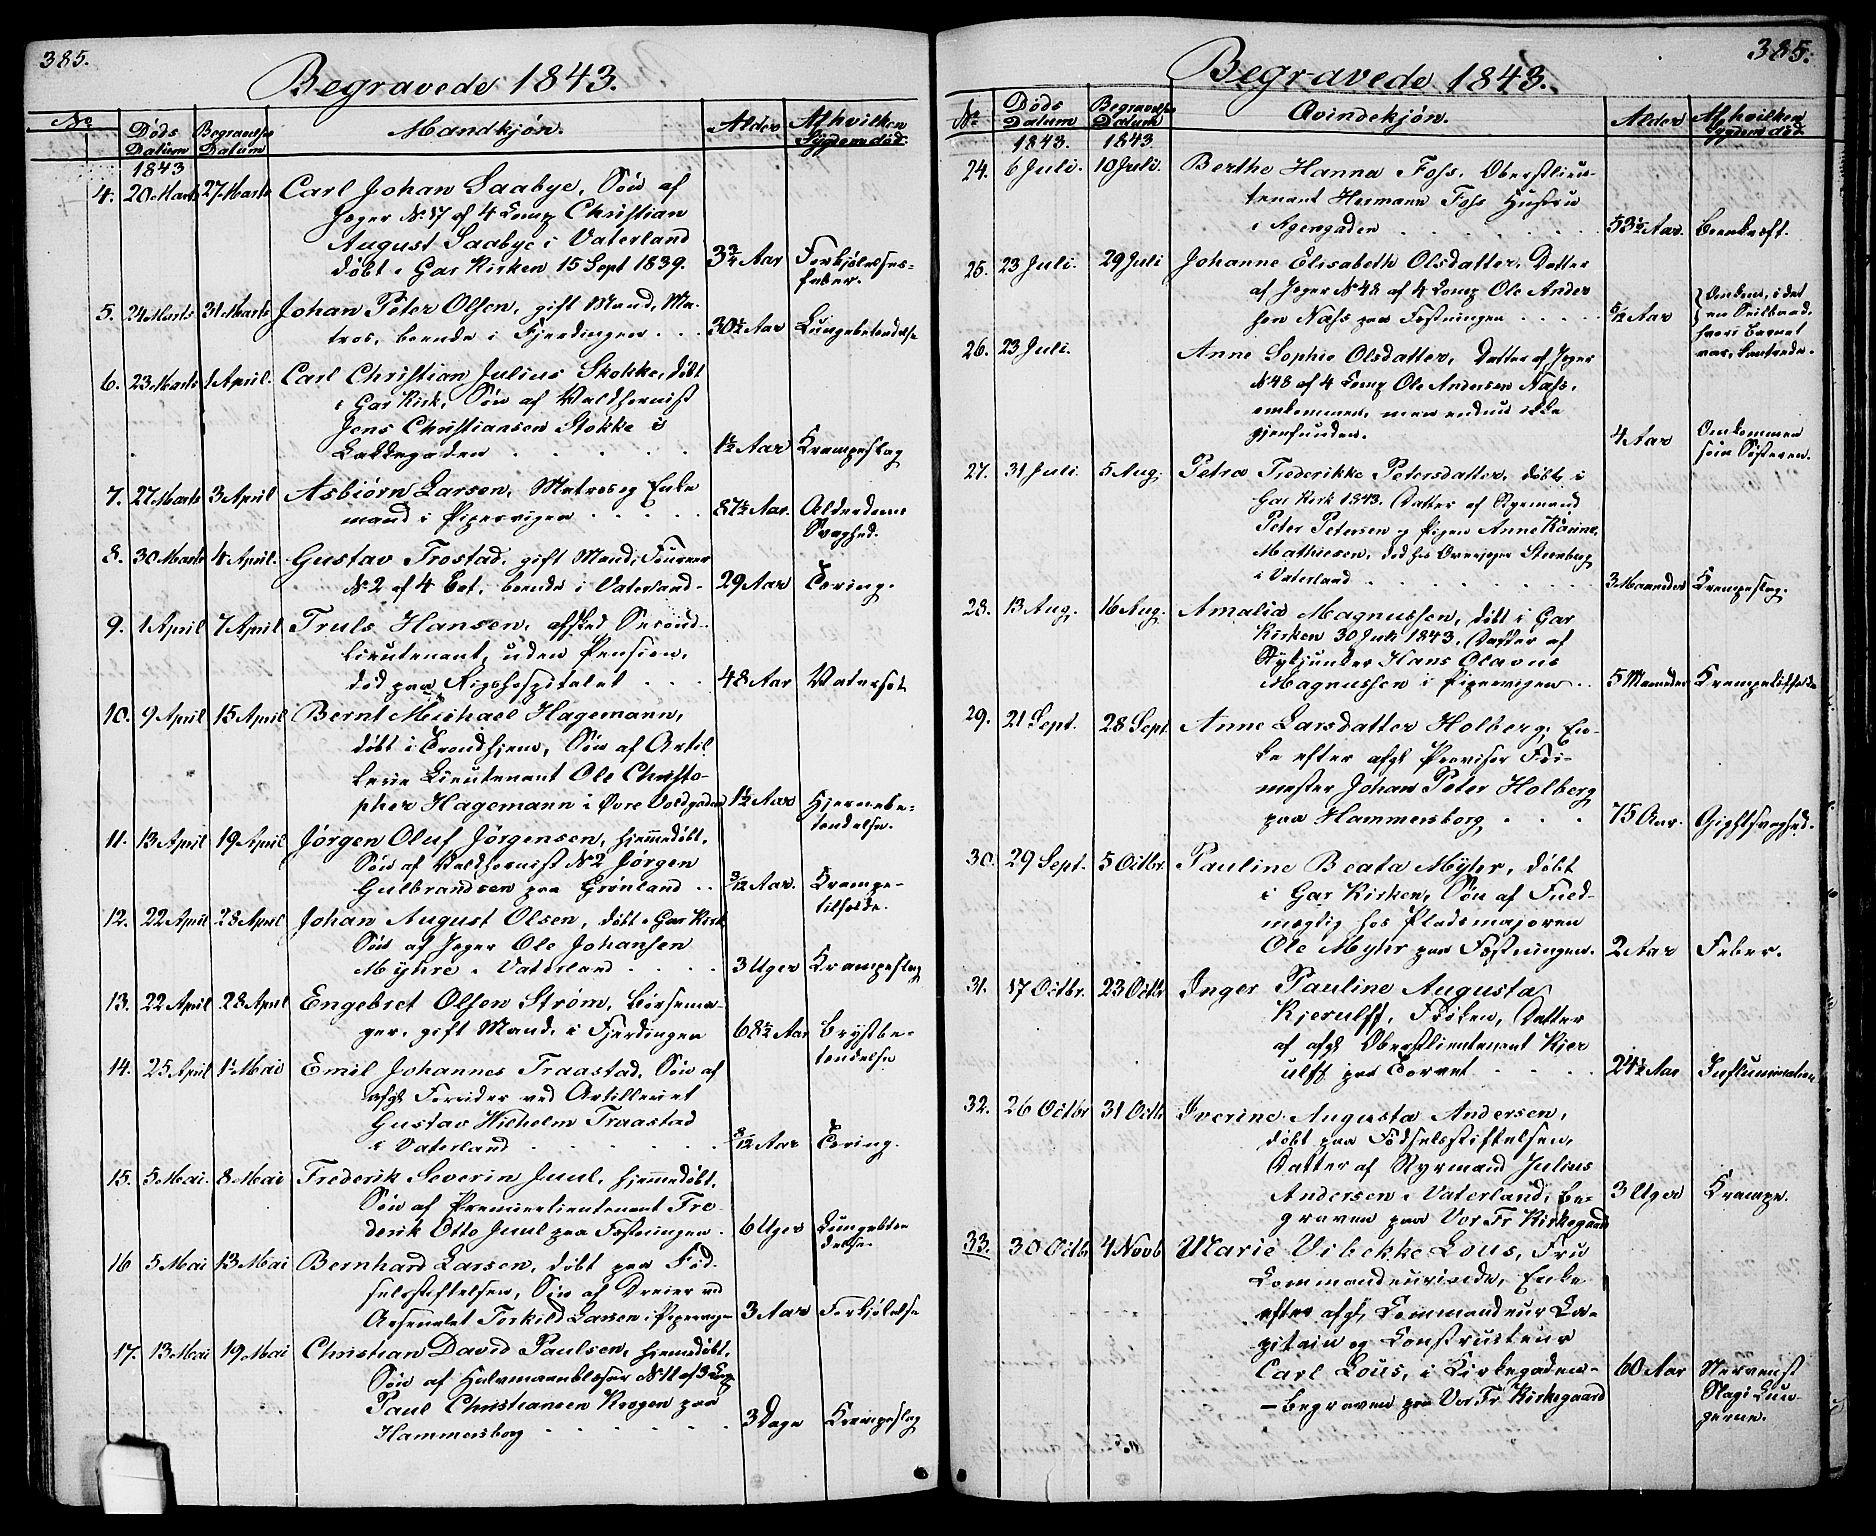 385.
Begravede 1843.
No Døds Datum Begravelse Datum Mandkjøn. Alder Af hvilken Sygdom død.
1843
4. 20 Marts 27 Marts Carl Johan Saabye, Søn af
Jeger No 17 af 4 Comp Christian
August Saabye i Vaterland
døbt i Gar Kirken 15 Sept 1839. 3 3/4 Aar Forkjølelses-
feber.
5. 24 Marts 31 Marts Johan Peter Olsen, gift Mand, Ma-
tros, boende i Fjerdingen . . . 30 1/2 Aar Lungebetendelse
6. 23 Marts 1 April. Carl Christian Julius Stokke, døbt
i Gar Kirk, Søn af Valdhornist
Jens Christiansen Stokke i
Lakkegaden . . . . . 1 1/2 Aar Krampeslag
7. 27 Marts 3 April Asbiørn Larsen, Matros og Enke
mand i Pipervigen . . . . . 87 1/2 Aar. Alderdoms
Svaghed.
8. 30 Marts 4 April. Gustav Trostad, gift Mand, Foureer
No 2 af 4 Bat. boende i Vaterland. 29 Aar Tæring.
9. 1 April 7 April Truls Hansen, afsked Second-
Lieutenant, uden Pension,
død paa Rigshospitalet . . . 48 Aar Vatersot
10. 9 April 15 April Bernt Michael Hagemann,
døbt i Trondhjem, Søn af Artil
lerie Lieutenant Ole Christo-
pher Hagemann i Øvre Voldgaden 1 1/2 Aar Hjernebe-
tendelse.
11. 13 April 19 April Jørgen Oluf Jørgensen, hjemmedøbt,
Søn af Valdhornist No 2 Jørgen
Gulbrandsen paa Grønland . . 9/12 Aar. Krampe-
tilfelde.
12. 22 April 28 April Johan August Olsen, døbt i Gar Kirk
Søn af Jeger Ole Johansen
Myhre i Vaterland . . . . 3 Uger Krampeslag
13. 22 April 28 April Engebret Olsen Strøm, Børsema-
ger, gift Mand, i Fjerdingen 68 1/2 Aar Brystbe-
tendelse
14. 25 April 1 Mai Emil Johannes Traastad, Søn af
afgk Forrider ved Artilleriet
Gustav Wilhelm Traastad
i Vaterland . . . . . 8/12 Aar Tæring.
15. 5 Mai. 8 Mai Frederik Severin Juul, hjemmedøbt,
Søn af Premierlieutenant Fre-
derik Otto Juul paa Festningen . 6 Uger Lungebeten
delse.
16 5 Mai 13 Mai Bernhard Larsen, døbt paa Fød
selsstiftelsen, Søn af Dreier ved
Arsenalet Torkild Larsen i Pipervigen 3 Aar Forkjølelse
17. 13 Mai 19 Mai Christian David Paulsen, hjemedøbt,
Søn af Halvmaanblæser No 11 af 3 Comp
Paul Christiansen Krogen paa
Hammersborg . . . . . 3 Dage Krampeslag
385.
Begravede 1843.
No Døds Datum Begravelse Datum Qvindekjøn. Alder Af hvilken Sygdom død.
1843. 1843
24. 6 Juli. 10 Juli. Berthe Hanna Foss, Oberstlieu-
tenant Hermann Foss Hustru
i Agersgaden . . . . . 53 1/2 Aar. Beenkræft.
25. 23 Juli. 29 Juli Johanne Elisabeth Olsdatter, Datter
af Jeger No 48 af 4 Comp Ole Ander
sen Næss paa Festningen . . . . . 5/12 Aar Omkom, i det
en Seilbaad,
hvori Barnet
var, kantrede.
26. 23 Juli. Anne Sophie Olsdatter, Datter af Jeger
No 48 af 4 Comp Ole Andersen Næss,
omkommen, men endnu ikke
gjenfunden. 4 Aar Omkommen
som Søsteren.
27. 31 Juli 5 Aug. Petra Frederikke Petersdatter, døbt i
Gar Kirk 1843. Datter af Ryemand
Peter Petersen og Pigen Anne Karine
Mathiesen, død hos Overjeger Steenberg
i Vaterland . . . . . 3 Maaneder Krampeslag.
28. 13 Aug. 16 Aug. Amalia Magnussen, døbt i Gar
Kirken 30 Juli 1843. Datter af
Stykjunker Hans Olavus
Magnussen i Pipervigen . . 5 Maaneder Krampetilfelde
29. 21 Sept. 28 Sept. Anne Larsdatter Holberg, En-
ke efter afgk Provisor Foi-
mester Johan Peter Holberg
paa Hammersborg . . . 75 Aar. Gigtsvaghed.
30. 29 Sept. 5 Octbr. Pauline Beata Myhr, døbt
i Gar Kirken, Søn af Fuld-
mægtig hos Pladsmajoren
Ole Myhr paa Festningen. 2 Aar Feber.
31. 17 Octbr. 23 Octbr Inger Pauline Augusta
Kjerulff, Frøken, Datter
af afgk Oberstlieutenant Kjer
ulff paa Torvet . . . . 24 1/2 Aar Inflammation
32. 26 Octbr 31 Octb Iverine Augusta Andersen,
døbt paa Fødselsstiftelsen,
Datter af Ryrmand Julius
Andersen i Vaterland, be-
graven paa Vor Fr Kirkegaard 3 Uger Krampe.
33. 30 Octbr 4 Novb Marie Vibekke Lous, Fru
Commandeurinde, Enke
efter afgk Commandeur Ca-
pitain og Constructeur
Carl Lous, i Kirkegaden-
- Begraven paa Vor Fr Kirkegaard 60 Aar Nervenst
Slag i Lun
gerne.